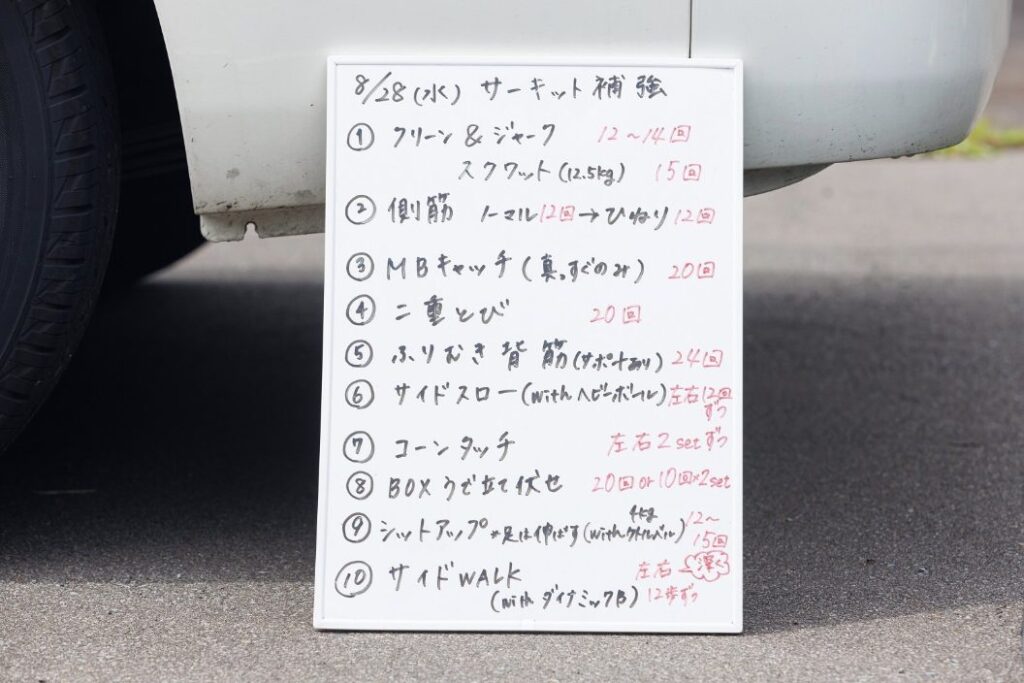 8/28(水) サーキット補強
① クリーン&ジャーク 12~14回
スクワット(12.5kg) 15回
② 側筋 ノーマル12回→ひねり12回
③ MBキャッチ(真っすぐのみ) 20回
④ 二重とび 20回
⑤ ふりむき背筋(サポートあり) 24回
⑥ サイドスロー(withヘビーボール)左右12回
ずつ
⑦ コーンタッチ 左右2setずつ
⑧ BOXうで立て伏せ 20回or10回×2set
4kg
⑨ シットアップ※足は伸ばす(withケトルベル) 12~
15回
⑩ サイドWALK 左右 深く
(with ダイナミックB) 12歩ずつ